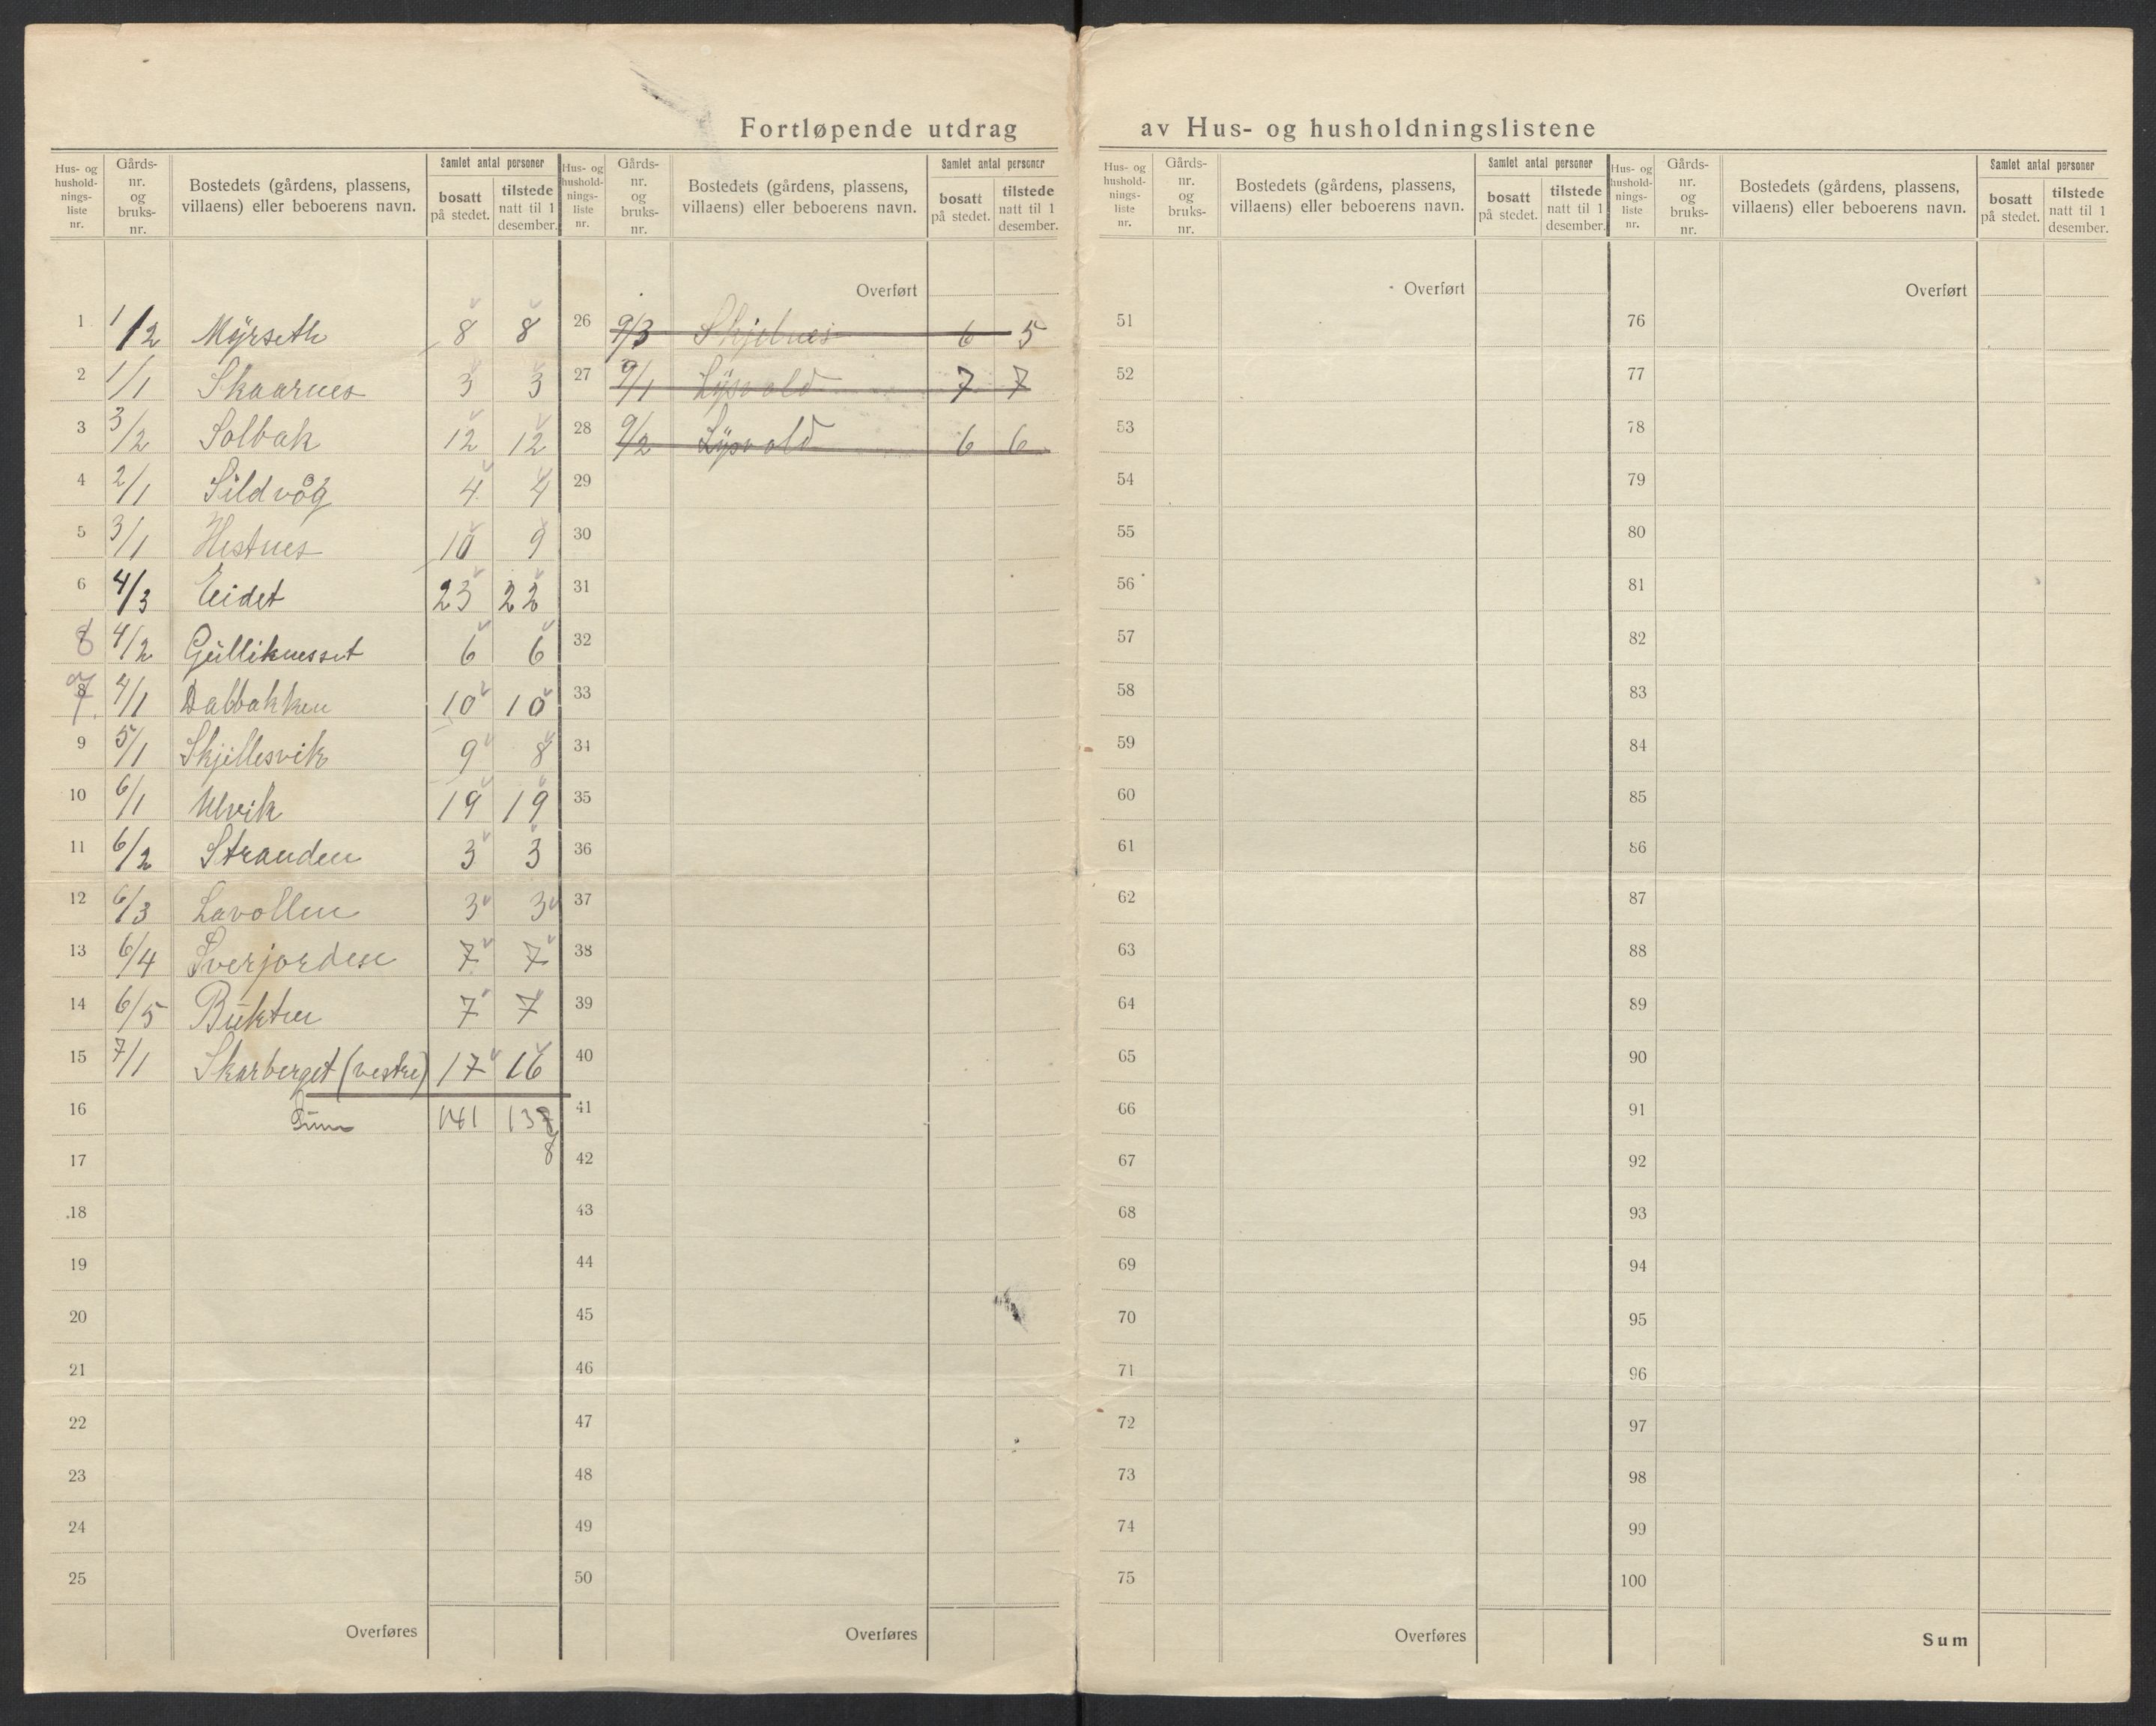 Fortløpende utdrag av Hus- og husholdningslistene
Hus- og hushold- nings- liste nr.
Gårds- nr. og bruks- nr.
Bostedets (gårdens, plassens, villaens) eller beboerens navn.
Samlet antal personer
bosatt på stedet.
tilstede natt til 1 desember.
Hus- og hushold- nings- liste nr.
Gårds- nr. og bruks- nr.
Bostedets (gårdens, plassens, villaens) eller beboerens navn.
Samlet antal personer
bosatt på stedet.
tilstede natt til 1 desember.
1 1/2 Myrseth 8 8
2 1/1 Skaarnes 3 3
3 3/2 Solbak 12 12
4 2/1 Sildvåg 4 4
5 3/1 Hestnes 10 9
6 4/3 Eidet 23 22
8 4/2 Gulliknesset 6 6
7 4/1 Dalbakken 10 10
9 5/1 Skjellesvik 9 8
10 6/1 Ulvik 19 19
11 6/2 Stranden 3 3
12 6/3 Lavollen 3 3
13 6/4 Sverjorden 7 7
14 6/5 Bukten 7 7
15 7/1 Skarberget (vestre) 17 16
16 Sum 141 137
17 8
18
19
20
21
22
23
24
25
Overføres
Overført
26 9/3 Skjelnes 6 5
27 9/1 Lysvold 7 7
28 9/2 Lysvold 6 6
29
30
31
32
33
34
35
36
37
38
39
40
41
42
43
44
45
46
47
48
49
50
Overføres
Hus- og hushold- nings- liste nr.
Gårds- nr. og bruks- nr.
Bostedets (gårdens, plassens, villaens) eller beboerens navn.
Samlet antal personer
bosatt på stedet.
tilstede natt til 1 desember.
Hus- og hushold- nings- liste nr.
Gårds- nr. og bruks- nr.
Bostedets (gårdens, plassens, villaens) eller beboerens navn.
Samlet antal personer
bosatt på stedet.
tilstede natt til 1 desember.
Overført
51
52
53
54
55
56
57
58
59
60
61
62
63
64
65
66
67
68
69
70
71
72
73
74
75
Overføres
Overført
76
77
78
79
80
81
82
83
84
85
86
87
88
89
90
91
92
93
94
95
96
97
98
99
100
Sum